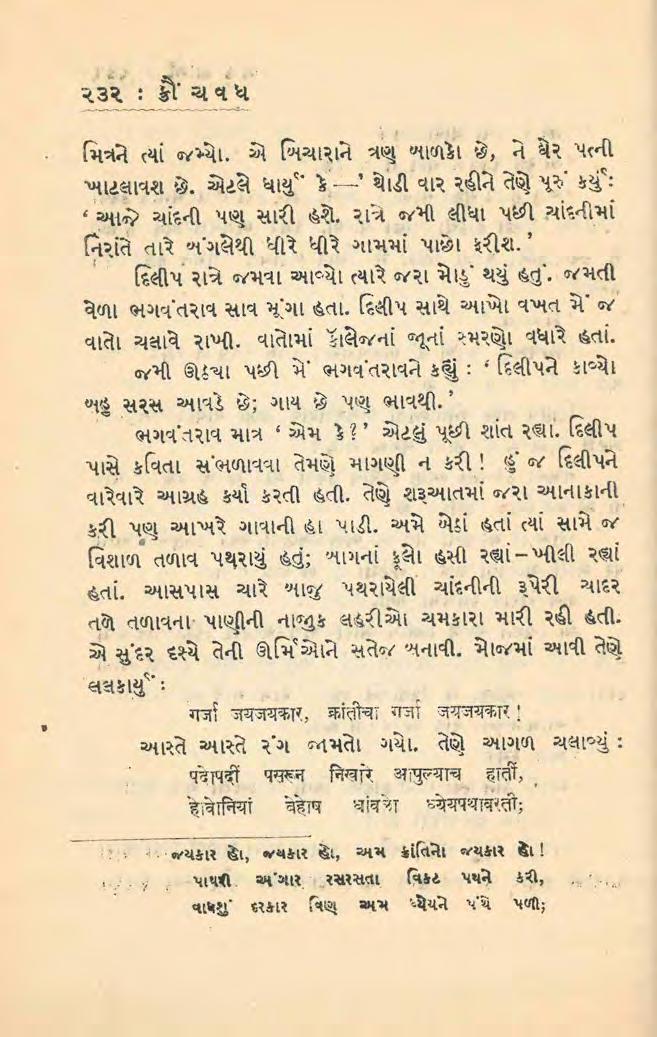 ૨૩૨ : ક્રૌંચવધ
મિત્રને ત્યાં જમ્યો. એ બિચારાને ત્રણ બાળકો છે, ને ઘેર પત્ની
ખાટલાવશ છે. એટલે ધાર્યું કે —’ થોડી વાર રહીને તેણે પૂરું કર્યું :
‘ આજે ચાંદની પણ સારી હશે. રાત્રે જમી લીધા પછી ચાંદનીમાં
નિરાંતે તારે બંગલેથી ધીરે ધીરે ગામમાં પાછો ફરીશ.’
દિલીપ રાત્રે જમવા આવ્યો ત્યારે જરા મોડું થયું હતું. જમતી
વેળા ભગવંતરાવ સાવ મૂંગા હતા. દિલીપ સાથે આખો વખત મેં જ
વાતો ચલાવે રાખી. વાતોમાં કૉલેજનાં જૂનાં સ્મરણો વધારે હતાં.
જમી ઊઠ્યા પછી મેં ભગવંતરાવને કહ્યું : ‘ દિલીપને કાવ્યો
બહુ સરસ આવડે છે; ગાય છે પણ ભાવથી.’
ભગવંતરાવ માત્ર ‘ એમ કે?’ એટલું પૂછી શાંત રહ્યા. દિલીપ
પાસે કવિતા સંભળાવવા તેમણે માગણી ન કરી! હું જ દિલીપને
વારેવારે આગ્રહ કર્યા કરતી હતી. તેણે શરૂઆતમાં જરા આનાકાની
કરી પણ આખરે ગાવાની હા પાડી. અમે બેઠાં હતાં ત્યાં સામે જ
વિશાળ તળાવ પથરાયું હતું; બાગનાં ફૂલો હસી રહ્યાં – ખીલી રહ્યાં
હતાં. આસપાસ ચારે બાજુ પથરાયેલી ચાંદનીની રૂપેરી ચાદર
તળે તળાવના પાણીની નાજુક લહરીઓ ચમકારા મારી રહી હતી.
એ સુંદર દૃશ્યે તેની ઊર્મિઓને સતેજ બનાવી. મોજમાં આવી તેણે
લલકાર્યું :
गर्जा जयजयकार, क्रांतीचा गर्जा जयजयकार !
આસ્તે આસ્તે રંગ જામતો ગયો. તેણે આગળ ચલાવ્યું :
पदोपदीं पसरून निखारे आपुल्याच हातीं,
होवोनियां बेहोष धांवलो ध्येयपथावरती;
જયકાર હો, જયકાર હો, અમ ક્રાંતિનો જયકાર હો !
પાથરી અંગાર રસરસતા વિકટ પથને કરી,
વાધશું દરકાર વિણ અમ ધ્યેયને પંથે પળી;